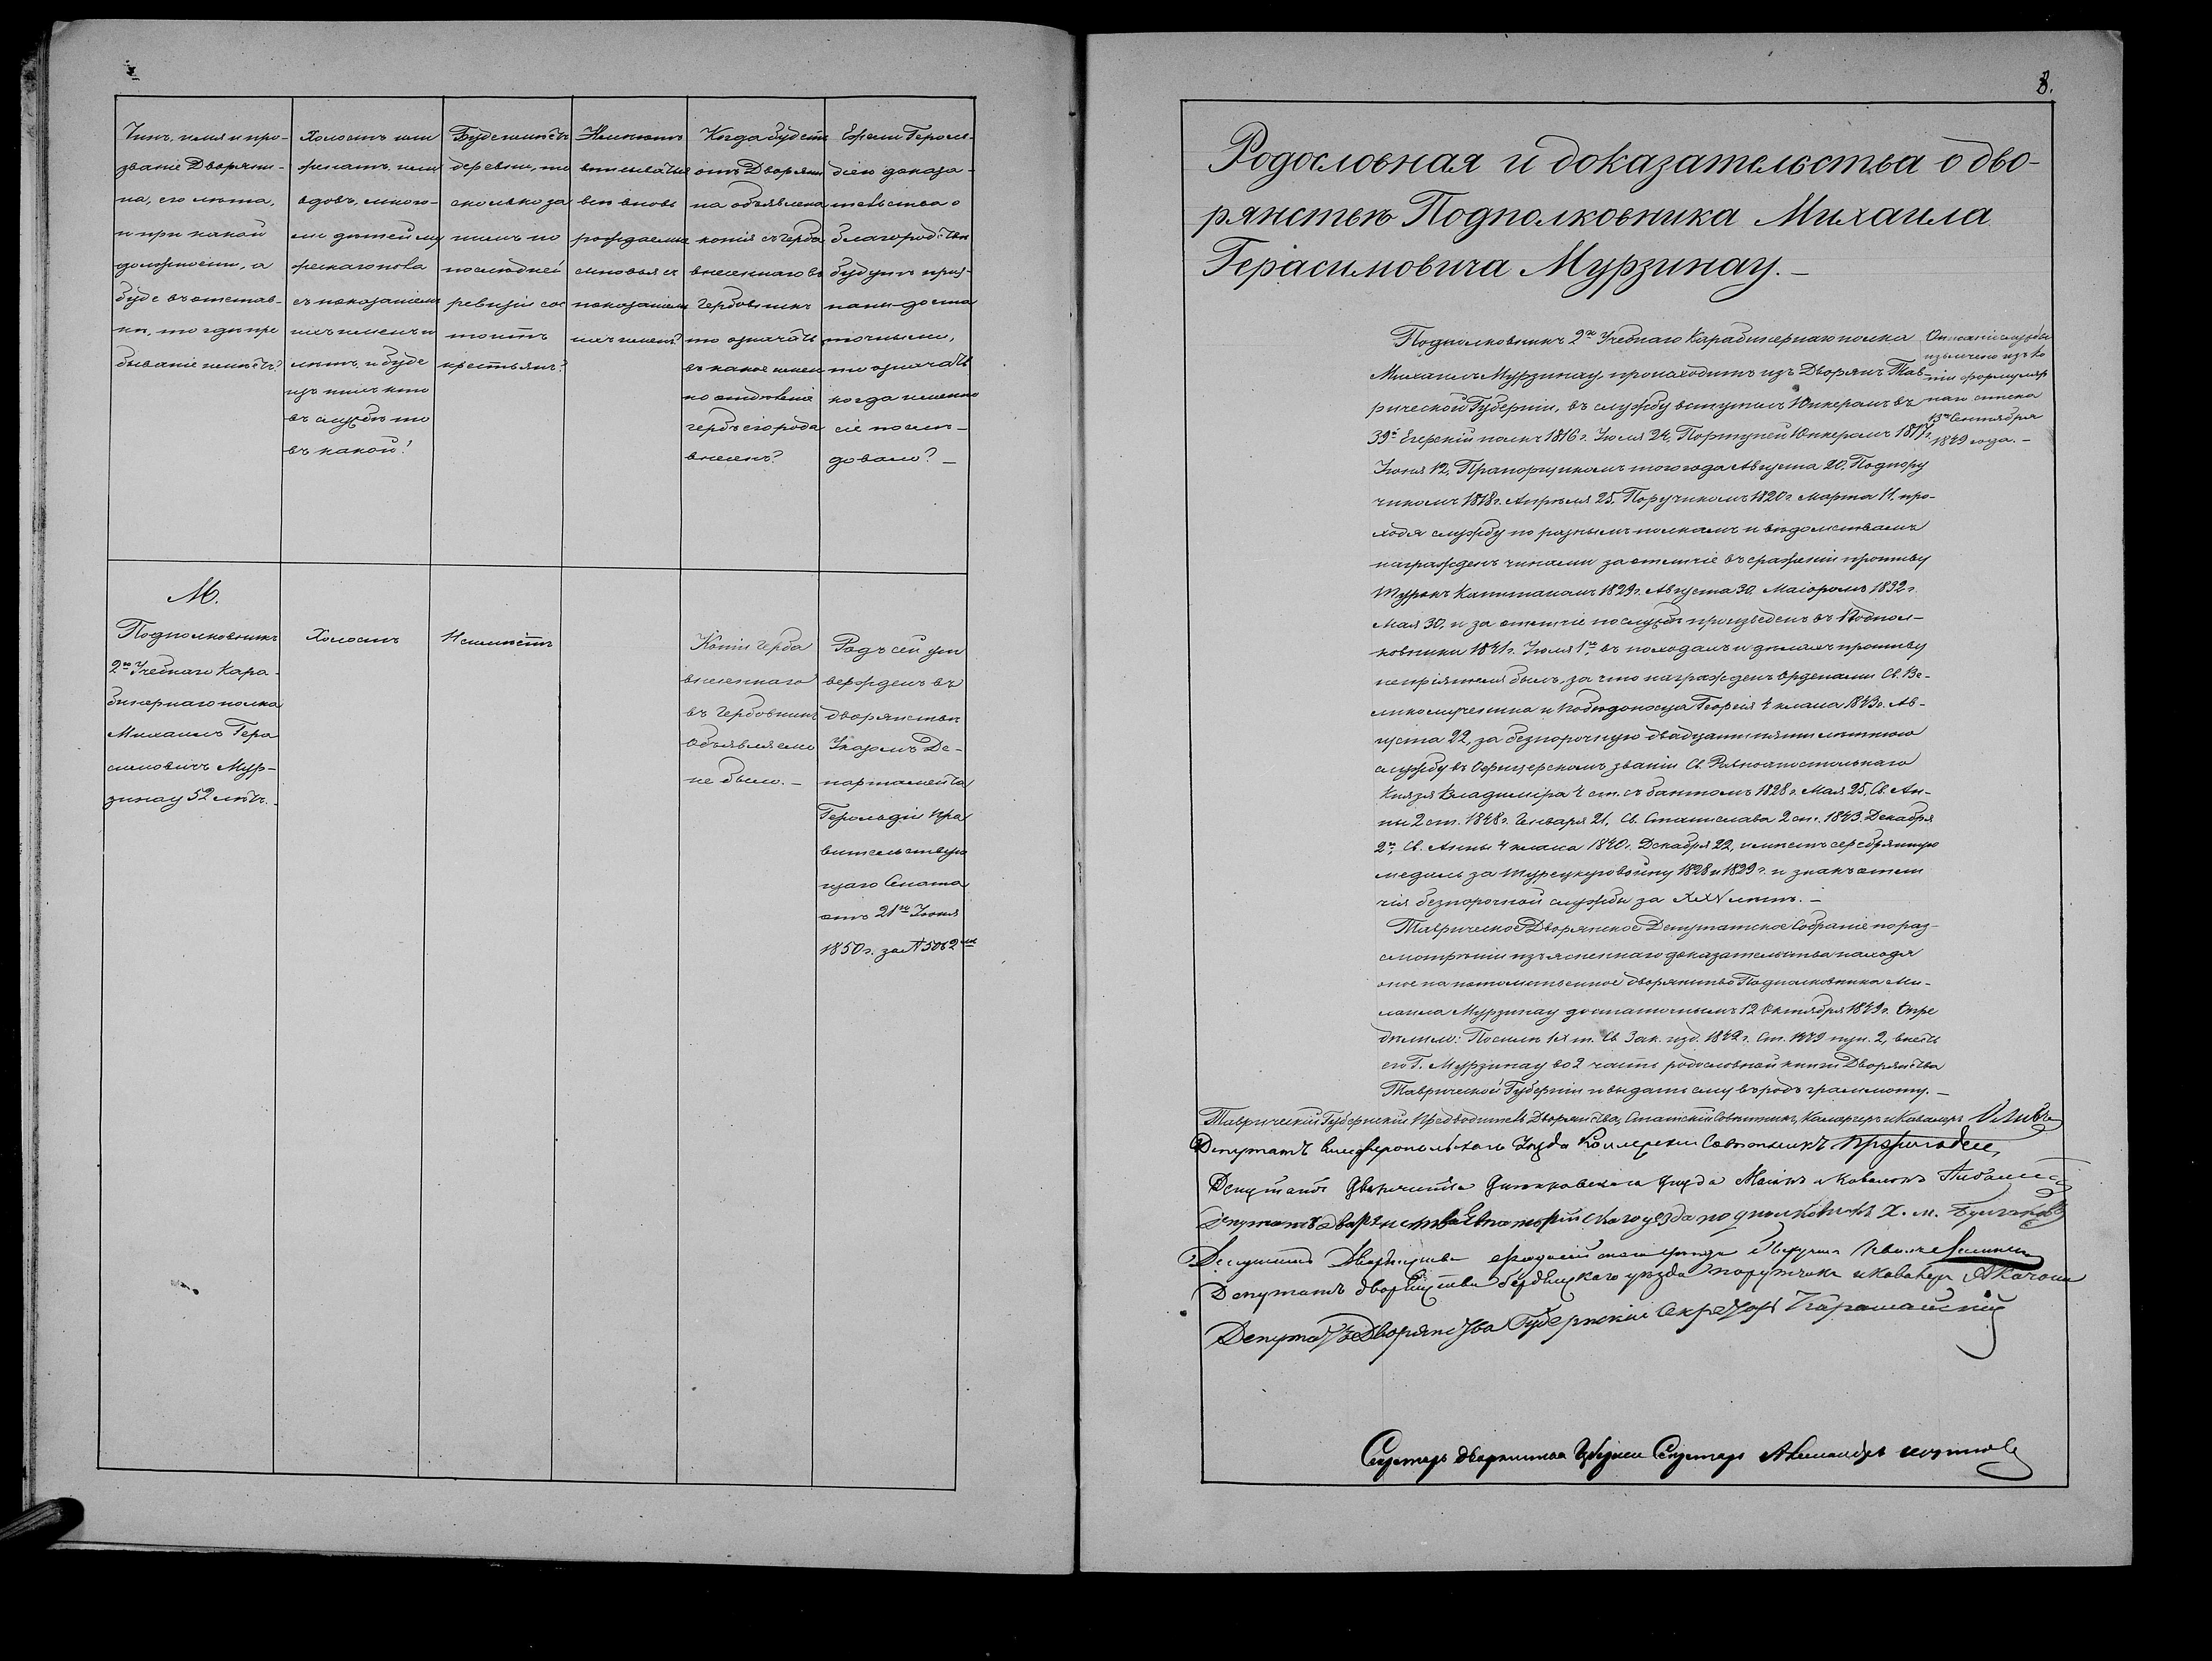 Чинъ, имя и про-
званіе Дворяни-
на, его лѣта,
и при какой
должности, а
буде въ отстав-
кѣ, то гдѣ пре
бываніе имѣетъ?
Холостъ или
женатъ, или
вдовъ, много-
ли дѣтей му
жескаго пола
съ показаніемъ
ихъ именъ и
лѣтъ, и буде
изъ нихъ кто
въ службѣ то
въ какой?
Буде имѣетъ
деревни, то
сколько за
нимъ по
послѣдней
ревизіи сос
тоитъ
крестьянъ?
Имѣютъ
вписываться
всѣ вновь
рождаемые
сыновья съ
показаніемъ
ихъ именъ?
Когда будетъ
отъ Дворяни
на объявлена
копія съ герба
внесеннаго въ
Гербовникъ
то означать
въ какое имен
но отдѣленіе
гербъ его рода
внесенъ?
Ежели Героль-
діею доказа-
тельства о
благородствѣ
будутъ приз-
наны доста
точными,
то означать
когда именно
сіе послѣ-
довало? —
М.
Подполковникъ
2го Учебнаго Кара-
бинернаго полка
Михаилъ Гера
симовичъ Мур-
зинау 52 лѣтъ.
Холостъ
Неимѣетъ
Копіи герба
внесеннаго
въ Гербовникъ
объявляемо
не было. —
Родъ сей ут
вержденъ въ
дворянствѣ
Указомъ Де-
партамента
Герольдіи Пра
вительствую
щаго Сената
отъ 21го Іюня
1850 г. за № 5062мъ
8.
Родословная и доказательства о дво-
рянствѣ Подполковника Михаила
Герасимовича Мурзинау. —
Подполковникъ 2го Учебнаго Карабинернаго полка
Михаилъ Мурзинау, происходитъ изъ Дворянъ Тав-
рической Губерніи, въ службу вступилъ Юнкеромъ въ
39й Егерскій полкъ 1816 г. Іюля 24, Портупей Юнкеромъ 1817 г.
Іюня 12, Прапорщикомъ того года Августа 20, Подпору
чикомъ 1818 г. Апрѣля 25, Поручикомъ 1820 г. Марта 11, про-
ходя службу по разнымъ полкамъ и вѣдомствамъ
награжденъ чинами за отличіе въ сраженіи противу
Турокъ Капитаномъ 1829 г. Августа 30, Маіоромъ 1832 г.
Мая 30, и за отличіе по службѣ произведенъ въ Подпол-
ковники 1841 г. Іюля 1го, въ походахъ и дѣлахъ противу
непріятеля былъ, за что награжденъ орденами Св. Ве-
ликомученика и Побѣдоносца Георгія 4 класа 1843 г. Ав-
густа 22, за безпорочную двадцати пяти лѣтнюю
службу въ Офицерскомъ званіи Св. Равноапостольнаго
Князя Владиміра 4 ст. съ бантомъ 1828 г. Мая 25, Св. Ан-
ны 2 ст. 1848 г. Января 21, Св. Станислава 2 ст. 1843 Декабря
2го, Св. Анны 4 класа 1840 г. Декабря 22, имѣетъ серебрянную
медаль за Турецкую войну 1828 и 1829 г. и знакъ отли
чія безпорочной службы за XXV лѣтъ. —
Описаніе службы
извлечено изъ ко
піи формуляр
наго списка
13го Сентября
1849 года. —
Таврическое Дворянское Депутатское Собраніе по раз-
смотрѣніи изъясненнаго доказательства находя
оное на потомственное дворянство Подполковника Ми-
хаила Мурзинау достаточнымъ 12 Октября 1849 г. Опре
дѣлило: По силѣ IX т. Св. Зак. изд. 1842 г. Ст. 1479 пун. 2, внесть
его Г. Мурзинау во 2 часть родословной книги Дворянства
Таврической Губерніи и выдать ему въ родъ грамоту. —
Таврическій Губернскій Предводитель Дворянства, Статскій Совѣтникъ, Камергеръ и Кавалеръ
Депутатъ Симферопольскаго Уѣзда Коллежскій Совѣтникъ
Депутатъ Дворянства Днѣпровскаго уѣзда Маіоръ и Кавалеръ
Депутатъ дворянства Евпаторійскаго уѣзда подполковникъ Х. м. Булгаковъ
Депутатъ Дворянства Феодосійскаго уѣзда Поручикъ
Депутатъ дворянства бердянскаго уѣзда поручикъ и Кавалеръ
Депутатъ Дворянства Губернскій Секретарь Карашайскій
Секретарь дворянства Губернскій Секретарь Александръ